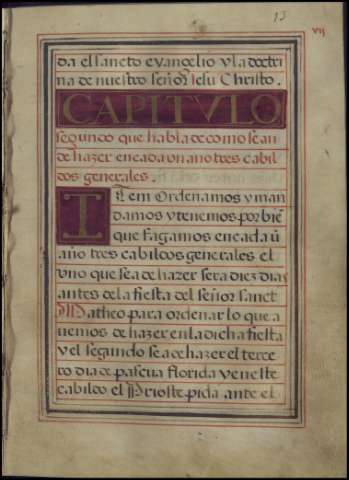 13
vij
da el sancto evangelio y la doctri
na de nuestro señor Jesu Christo.
CAPITVLO
segundo que habla de como se an
de hazer en cada un ano tres cabil
dos generales.
Item Ordenamos y man
damos y tenemos por biē
que fagamos en cada ū
año tres cabildos generales el
vno que se a de hazer sera diez dias
antes de la fiesta del señor sanct
Matheo para ordenar lo que a
uemos de hazer en la dicha fiesta
y el segundo se a de hazer el terce
ro dia de pascua florida y en este
cabildo el Prioste pida ante el